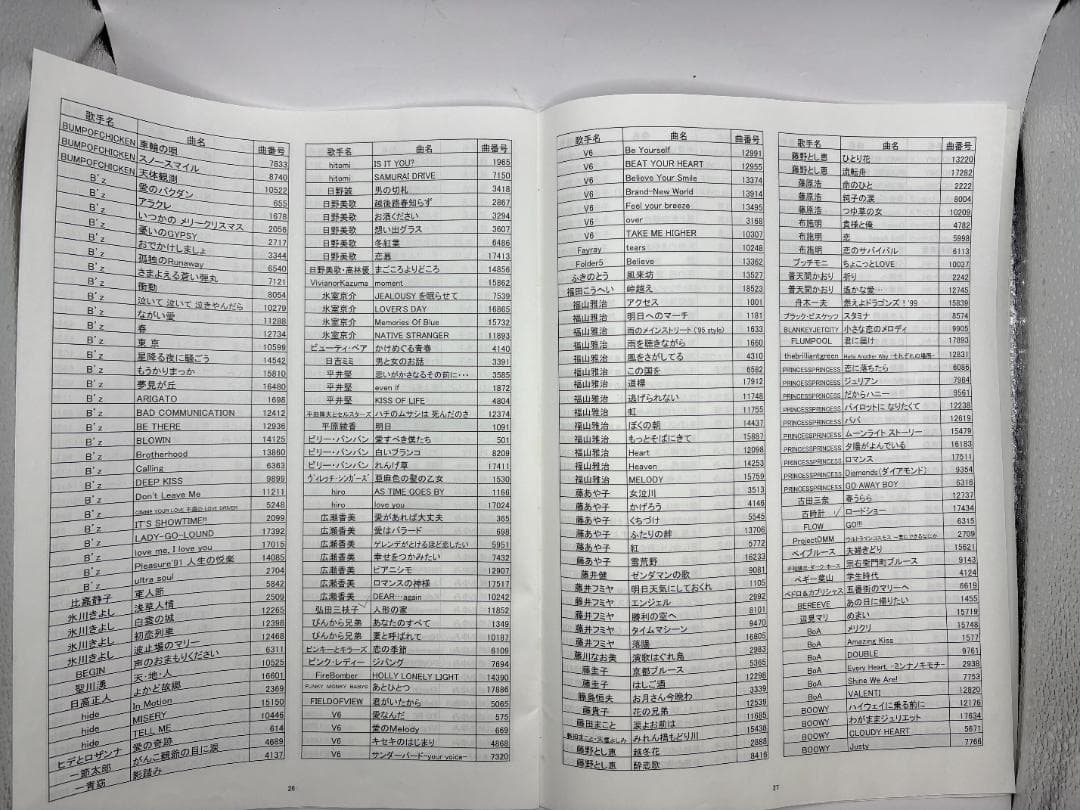 歌手名 曲名 曲番号
BUMPOFCHICKEN 車輪の唄 7633
BUMPOFCHICKEN スノースマイル 8740
BUMPOFCHICKEN 天体観測 10522
B'z 愛のバクダン 655
B'z アラクレ 1678
B'z いつかの メリークリスマス 2056
B'z 憂いのGYPSY 2717
B'z おでかけしましょ 3344
B'z 孤独のRunaway 6540
B'z さまよえる蒼い弾丸 7121
B'z 衝動 8054
B'z 泣いて 泣いて 泣きやんだら 10279
B'z ながい愛 11288
B'z 春 12734
B'z 東京 10599
B'z 星降る夜に騒ごう 14542
B'z もうかりまっか 15810
B'z 夢見が丘 16480
B'z ARIGATO 1698
B'z BAD COMMUNICATION 12412
B'z BE THERE 12936
B'z BLOWIN 14125
B'z Brotherhood 13860
B'z Calling 6363
B'z DEEP KISS 9899
B'z Don't Leave Me 11211
B'z 5248
B'z IT'S SHOWTIME!! 2099
B'z LADY-GO-LOUND 17392
B'z love me, I love you 17015
B'z Pleasure'91 人生の悦楽 14085
B'z ultra soul 2704
比嘉静子 軍人節 5842
氷川きよし 浅草人情 2509
氷川きよし 白雲の城 12265
氷川きよし 初恋列車 12398
氷川きよし 波止場のマリー 12468
BEGIN 声のおまもりください 6311
聖川湧 天・地・人 10525
日高正人 よかど故郷 16601
hide In Motion 2369
hide MISERY 15150
hide TELL ME 10446
ヒデとロザンナ 愛の奇跡 614
一節太郎 がんこ親爺の目に涙 4689
一青窈 影踏み 4137
26
歌手名 曲名 曲番号
hitomi IS IT YOU? 1965
hitomi SAMURAI DRIVE 7150
日野誠 男の切札 3418
日野美歌 越後路春知らず 2867
日野美歌 お酒ください 3294
日野美歌 想い出グラス 3607
日野美歌 冬紅葉 6486
日野美歌 恋慕 17413
日野美歌・高林優 まごころよりどころ 14856
VivianorKazuma moment 15862
氷室京介 JEALOUSYを眠らせて 7539
氷室京介 LOVER'S DAY 16865
氷室京介 Memories Of Blue 15732
氷室京介 NATIVE STRANGER 11893
ビューティ・ペア かけめぐる青春 4140
日吉ミミ 男と女のお話 3391
平井堅 思いがかさなるその前に・・・ 3585
平井堅 even if 1872
平井堅 KISS OF LIFE 4804
平田隆夫とセルスターズ ハチのムサシは 死んだのさ 12374
平原綾香 明日 1091
ビリー・バンバン 愛すべき僕たち 501
ビリー・バンバン 白いブランコ 8209
ビリー・バンバン れんげ草 17411
ヴィレッヂ・シンガーズ 亜麻色の髪の乙女 1530
hiro AS TIME GOES BY 1166
hiro love you 17024
広瀬香美 愛があれば大丈夫 365
広瀬香美 愛はバラード 698
広瀬香美 ゲレンデがとけるほど恋したい 5951
広瀬香美 幸せをつかみたい 7432
広瀬香美 ピアニシモ 12907
広瀬香美 ロマンスの神様 17517
広瀬香美 DEAR…again 10242
弘田三枝子 人形の家 11852
ぴんから兄弟 あなたのすべて 1349
ぴんから兄弟 妻と呼ばれて 10187
ピンキーとキラーズ 恋の季節 6109
ピンク・レディー ジパング 7694
FireBomber HOLLY LONELY LIGHT 14390
FUNKY MONKY BABYS あとひとつ 17886
FIELDOFVIEW 君がいたから 5065
V6 愛なんだ 575
V6 愛のMelody 669
V6 キセキのはじまり 4868
V6 サンダーバード-your voice- 7320
歌手名 曲名 曲番号
V6 Be Yourself 12991
V6 BEAT YOUR HEART 12955
V6 Believe Your Smile 13374
V6 Brand-New World 13914
V6 Feel your breeze 13495
V6 over 3168
V6 TAKE ME HIGHER 10307
Fayray tears 10248
Folder5 Believe 13362
ふきのとう 風来坊 13527
福田こうへい 峠越え 18523
福山雅治 アクセス 1001
福山雅治 明日へのマーチ 1181
福山雅治 雨のメインストリート('95 style) 1633
福山雅治 雨を聴きながら 1660
福山雅治 風をさがしてる 4310
福山雅治 この国を 6582
福山雅治 道標 17912
福山雅治 逃げられない 11748
福山雅治 虹 11755
福山雅治 ぼくの朝 14437
福山雅治 もっとそばにきて 15887
福山雅治 Heart 12098
福山雅治 Heaven 14253
福山雅治 MELODY 15759
藤あや子 女泣川 3513
藤あや子 かげろう 4146
藤あや子 くちづけ 5545
藤あや子 ふたりの絆 13706
藤あや子 紅 5772
藤あや子 雪荒野 16233
藤井健 ゼンダマンの歌 9081
藤井フミヤ 明日天気にしておくれ 1105
藤井フミヤ エンジェル 2992
藤井フミヤ 勝利の空へ 8101
藤井フミヤ タイムマシーン 9470
藤井フミヤ 落陽 16805
藤川なお美 演歌はぐれ鳥 2983
藤圭子 京都ブルース 5365
藤圭子 はしご酒 12298
藤島恒夫 お月さん今晩わ 3339
藤貴子 花の兄弟 12539
藤田まこと 涙よお前は 11885
みれん橋もどり川 15438
藤野とし恵 越冬花 2888
藤野とし恵 酔恋歌 8419
27
歌手名 曲名 曲番号
藤野とし恵 ひとり花 13220
藤野とし恵 流転舟 17282
藤原浩 命のひと 2222
藤原浩 純子の涙 8004
藤原浩 つゆ草の女 10209
布施明 貴様と俺 4782
布施明 恋 5998
布施明 恋のサバイバル 6113
プッチモニ ちょこっとLOVE 10037
普天間かおり 祈り 2242
普天間かおり 遥かな愛… 12745
舟木一夫 燃えよドラゴンズ！'99 15839
ブラック・ビスケッツ スタミナ 8574
BLANKEYJETCITY 小さな恋のメロディ 9905
FLUMPOOL 君に届け 17893
thebrilliantgreen Hello Another Way -それぞれの場所- 12831
PRINCESSPRINCESS 恋に落ちたら 6086
PRINCESSPRINCESS ジュリアン 7984
PRINCESSPRINCESS だからハニー 9561
PRINCESSPRINCESS パイロットに なりたくて 12238
PRINCESSPRINCESS パパ 12619
PRINCESSPRINCESS ムーンライト ストーリー 15479
PRINCESSPRINCESS 夕陽がよんでいる 16183
PRINCESSPRINCESS ロマンス 17511
PRINCESSPRINCESS Diamonds(ダイアモンド) 9354
PRINCESSPRINCESS GO AWAY BOY 6316
古田三奈 春うらら 12737
古時計 ロードショー 17434
FLOW GO!!! 6315
ProjectDMM 2709
ベイブルース 夫婦きどり 15621
宗右衛門町ブルース 9143
ペギー葉山 学生時代 4124
ペドロ&カプリシャス 五番街のマリーへ 6619
BEREEVE あの日に帰りたい 1455
辺見マリ めまい 15719
BoA メリクリ 15748
BoA Amazing Kiss 1577
BoA DOUBLE 9761
BoA Every Heart -ミンナノキモチ- 2938
BoA Shine We Are! 7753
BoA VALENTI 12820
BOOWY ハイウェイに乗る前に 12176
BOOWY わがままジュリエット 17634
BOOWY CLOUDY HEART 5671
BOOWY Justy 7766